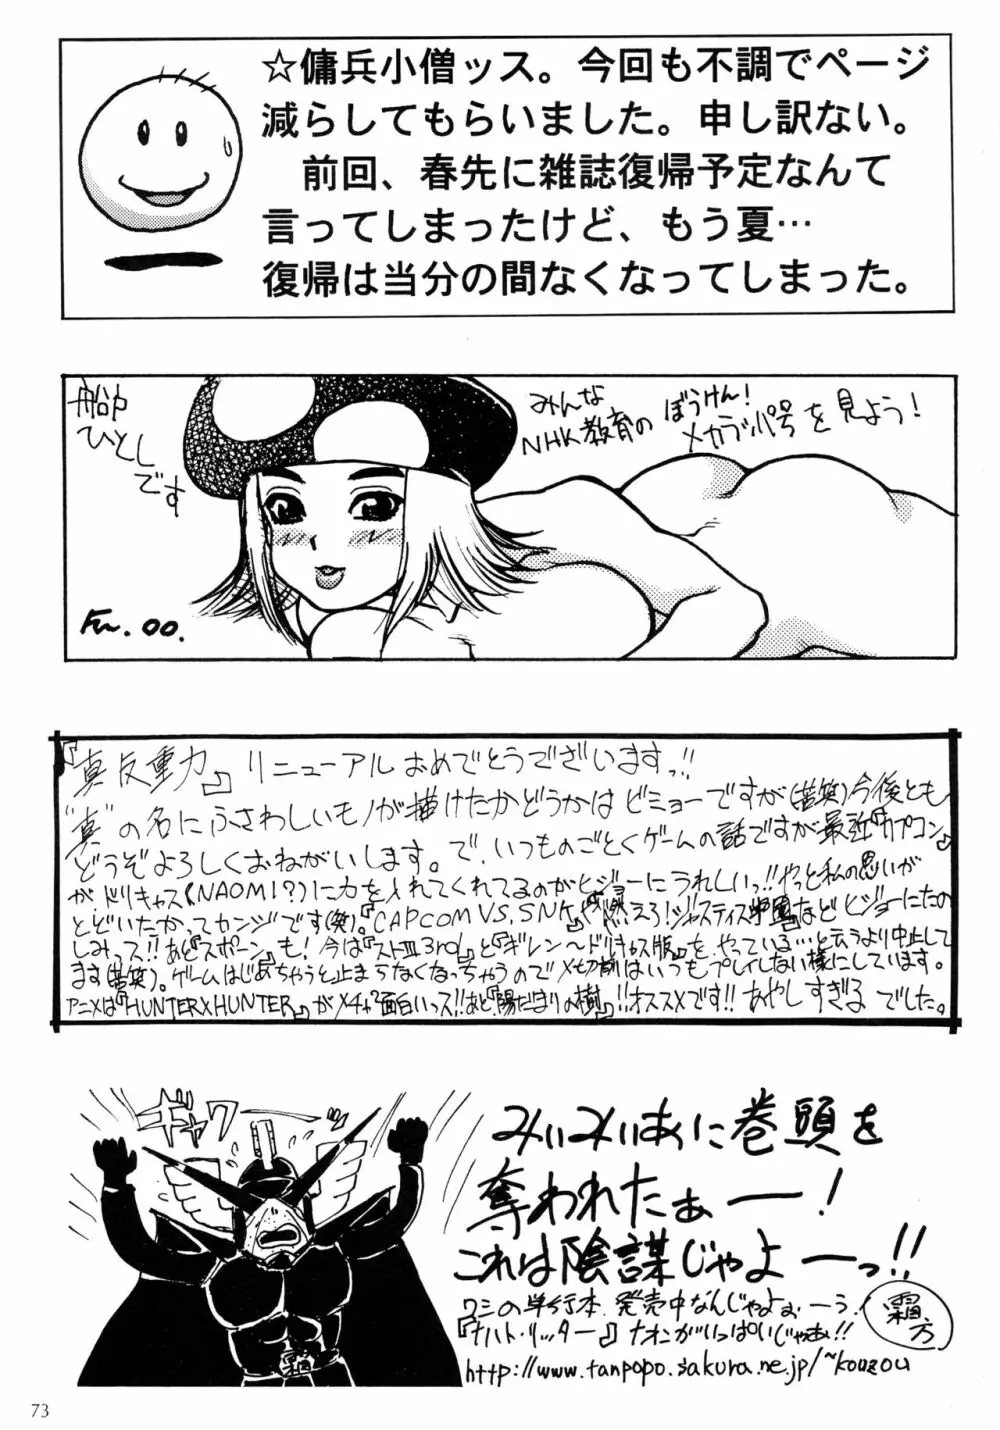 ☆傭兵小僧ッス。今回も不調でページ
減らしてもらいました。申し訳ない。
前回、春先に雑誌復帰予定なんて
言ってしまったけど、もう夏…
復帰は当分の間なくなってしまった。
船中
ひとし
です
みんな
NHK教育の
ぼうけん!
メカラッパ号を見よう!
Fu~.00.
『真反重力』リニューアルおめでとうございますっ!!
"真"の名にふさわしいモノが描けたかどうかはビミョーですが(苦笑)今後とも
どうぞよろしくおねがいします。で、いつものごとくゲームの話ですが最近『カプコン』
がドリキャス(NAOMI?)に力を入れてくれてるのがヒジョーにうれしいっ!!やっと私の思いが
とどいたかってカンジです(笑)。『CAPCOM VS. SNK』『燃えろ!ジャスティス学園』などヒジョーにたの
しみっス!!あと『スポーン』も!今は『ストIII 3rd』と『ギレン〜ドリキャス版』をやっている…と云うより中止して
ます(苦笑)。ゲームはじめちゃうと止まらなくなっちゃうので〆切前はいつもプレイしない様にしています。
アニメは『HUNTER×HUNTER』がメチャ?面白いっス!!あと『陽だまりの樹』!!オススメです!!あやしすぎるでした。
ギャワーッ
みぃみぃあぃに巻頭を
奪われたぁー!
これは陰謀じゃよーっ!!
ワシの単行本、発売中なんじゃよぉーう!
『ナハト・リッター』ナオンがいっぱいじゃあ!!
霜方
霜
http://www.tanpopo.sakura.ne.jp/~kouzou
73